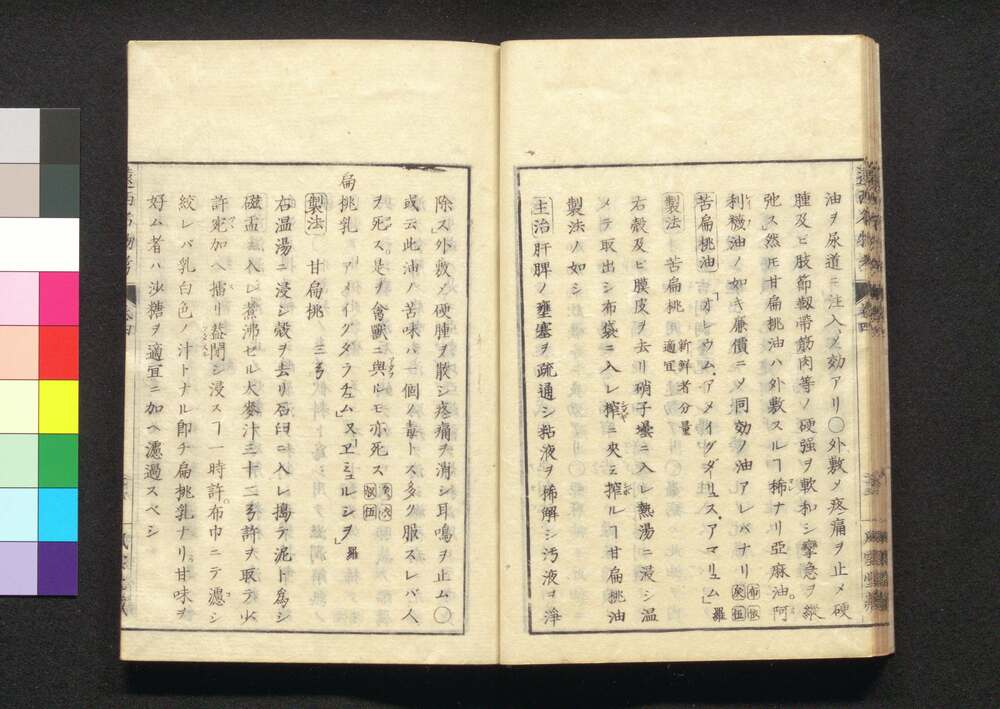 油ヲ尿道ニ注入メ効アリ〇外敷メ疼痛ヲ止メ硬
腫及ヒ肢節靱帶筋肉等ノ硬强ヲ軟和シ攣急ヲ縱
弛ス然𪜈甘扁桃油ハ外敷スルヿ稀ナリ亞麻油阿
利襪油ノ如き廉價ニメ同効ノ油アレバナリ
苦扁桃油 「オレウム、アメイグダリュス、アマリュム」羅
製法 苦扁桃 新鮮者分量適宜
右殼及ビ膜皮ヲ去リ硝子壜ニ入レ熱湯ニ浸シ温
メテ取出シ布袋ニ入レ搾ニ夾ミ搾ルヿ甘扁桃油
製法ノ如シ
主治 肝脾ノ壅塞ヲ疏通シ粘液ヲ稀解シ汚液ヲ淨
除ス外敷メ硬腫ヲ𪜈シ疼痛ヲ消シ耳鳴ヲ止ム〇
或云此油ハ苦味ハ一個ノ毒トス多ク服スレバ人
ヲ死ス是ヲ禽獸ニ與ルモ亦死ス
扁桃乳 「アメイグダラアム」又「エミュルシヲ」羅
製法 甘扁桃 三弓
右温湯ニ浸シ殼ヲ去リ石臼ニ入レ搗テ泥ト爲シ
磁盂ニ入レ煮沸セル大麥汁三十二弓許ヲ取テ少
許宛加ヘ擂リ葢閉シ浸スヿ一時許布巾ニテ濾シ
絞レバ乳白色ノ汁トナル卽チ扁桃乳ナリ甘味ヲ
好ム者ハ沙糖ヲ適宜ニ加ヘ濾過スベシ